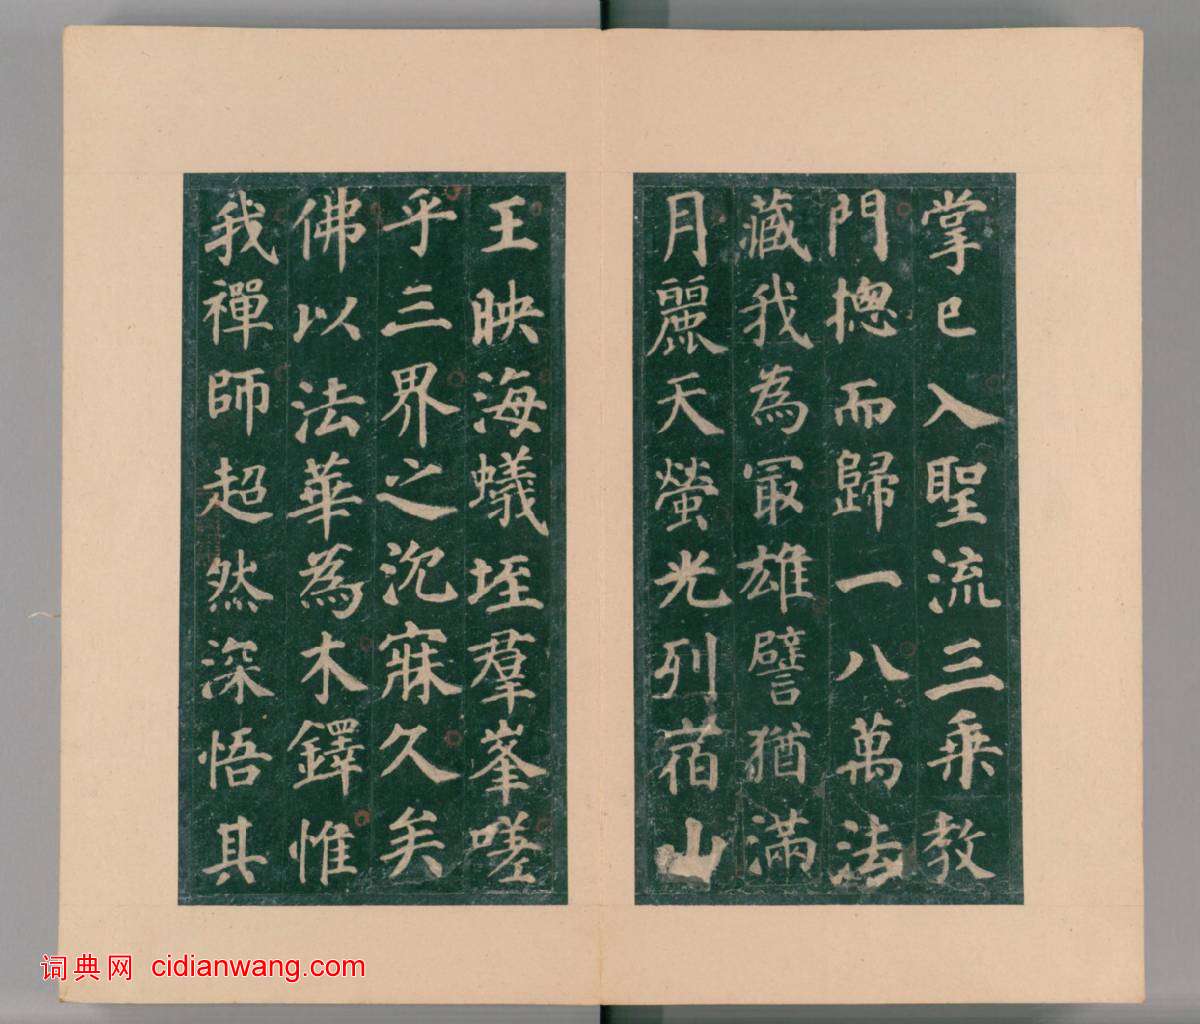 掌已入聖流三乘教
門揔而歸一八萬法
藏我為冣雄譬猶滿
月麗天螢光列宿山
王映海蟻垤羣峯嗟
乎三界之沉寐久矣
佛以法華為木鐸惟
我禪師超然深悟其
词典网 cidianwang.com